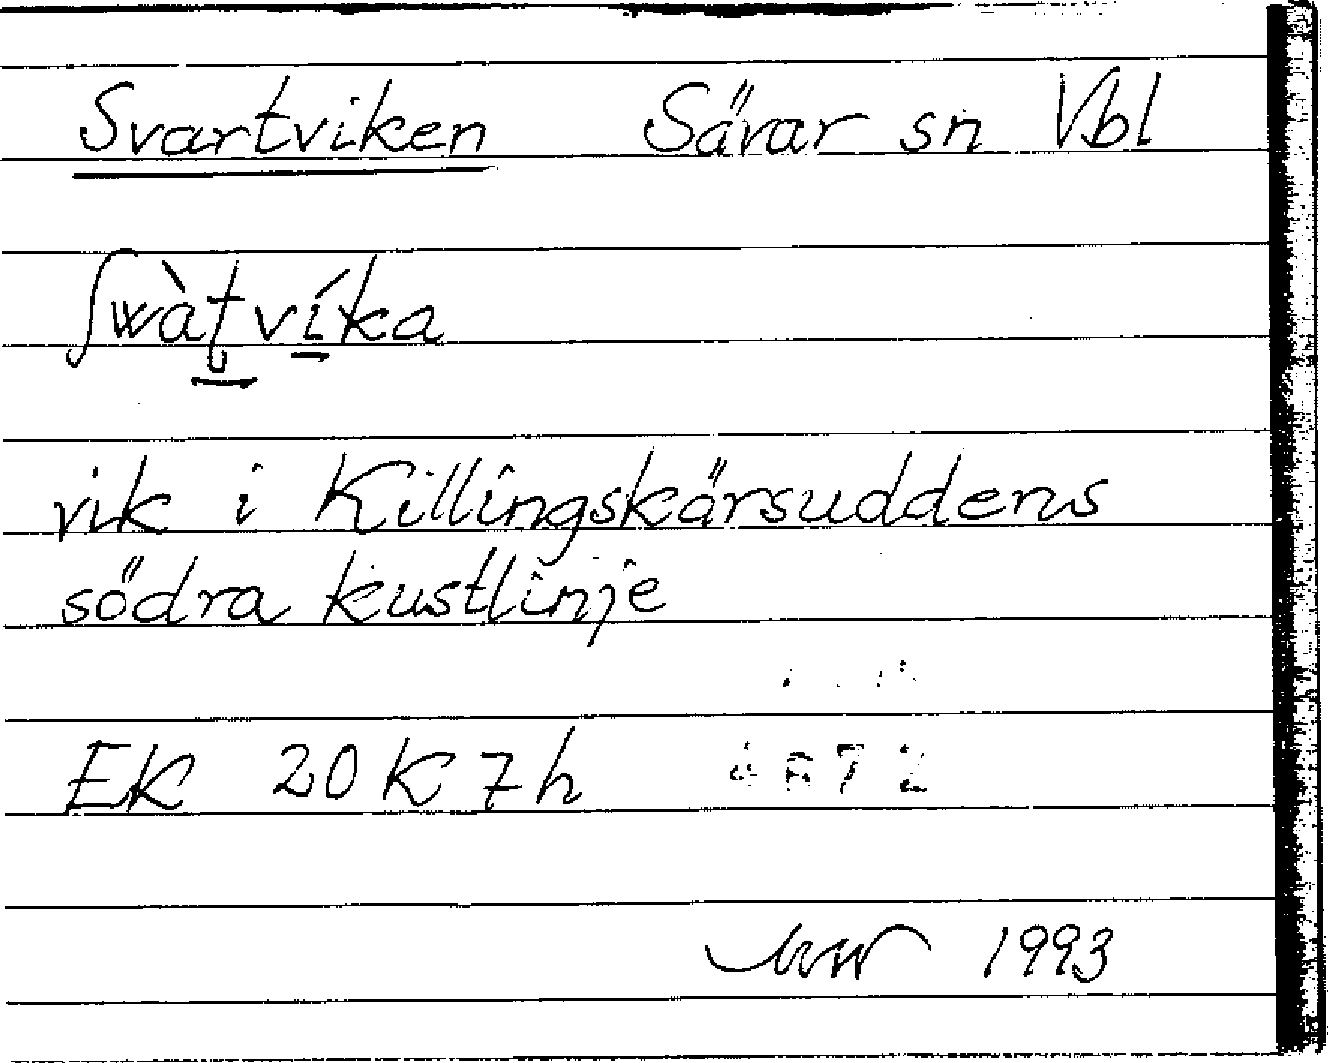 Svartviken Sävar sn Vbl
ʃwàʈvíka
vik i Killingskärsuddens
södra kustlinje
EK 20K7h
1993